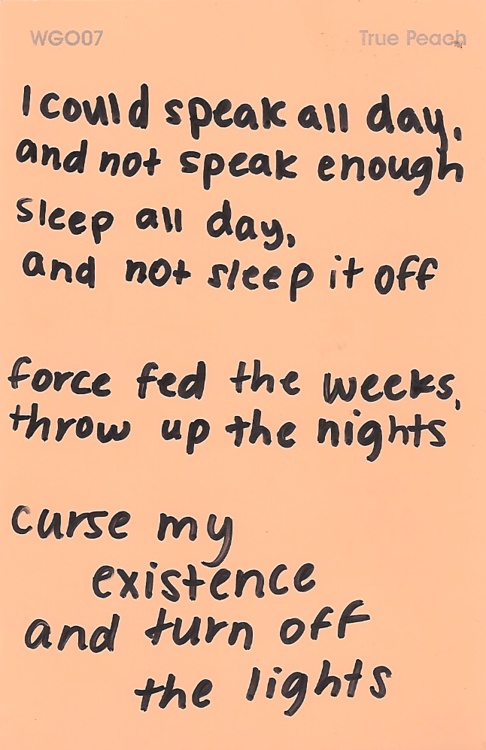 WGO07 True Peach
I could speak all day,
and not speak enough
sleep all day,
and not sleep it off
force fed the weeks,
throw up the nights
curse my
existence
and turn off
the lights